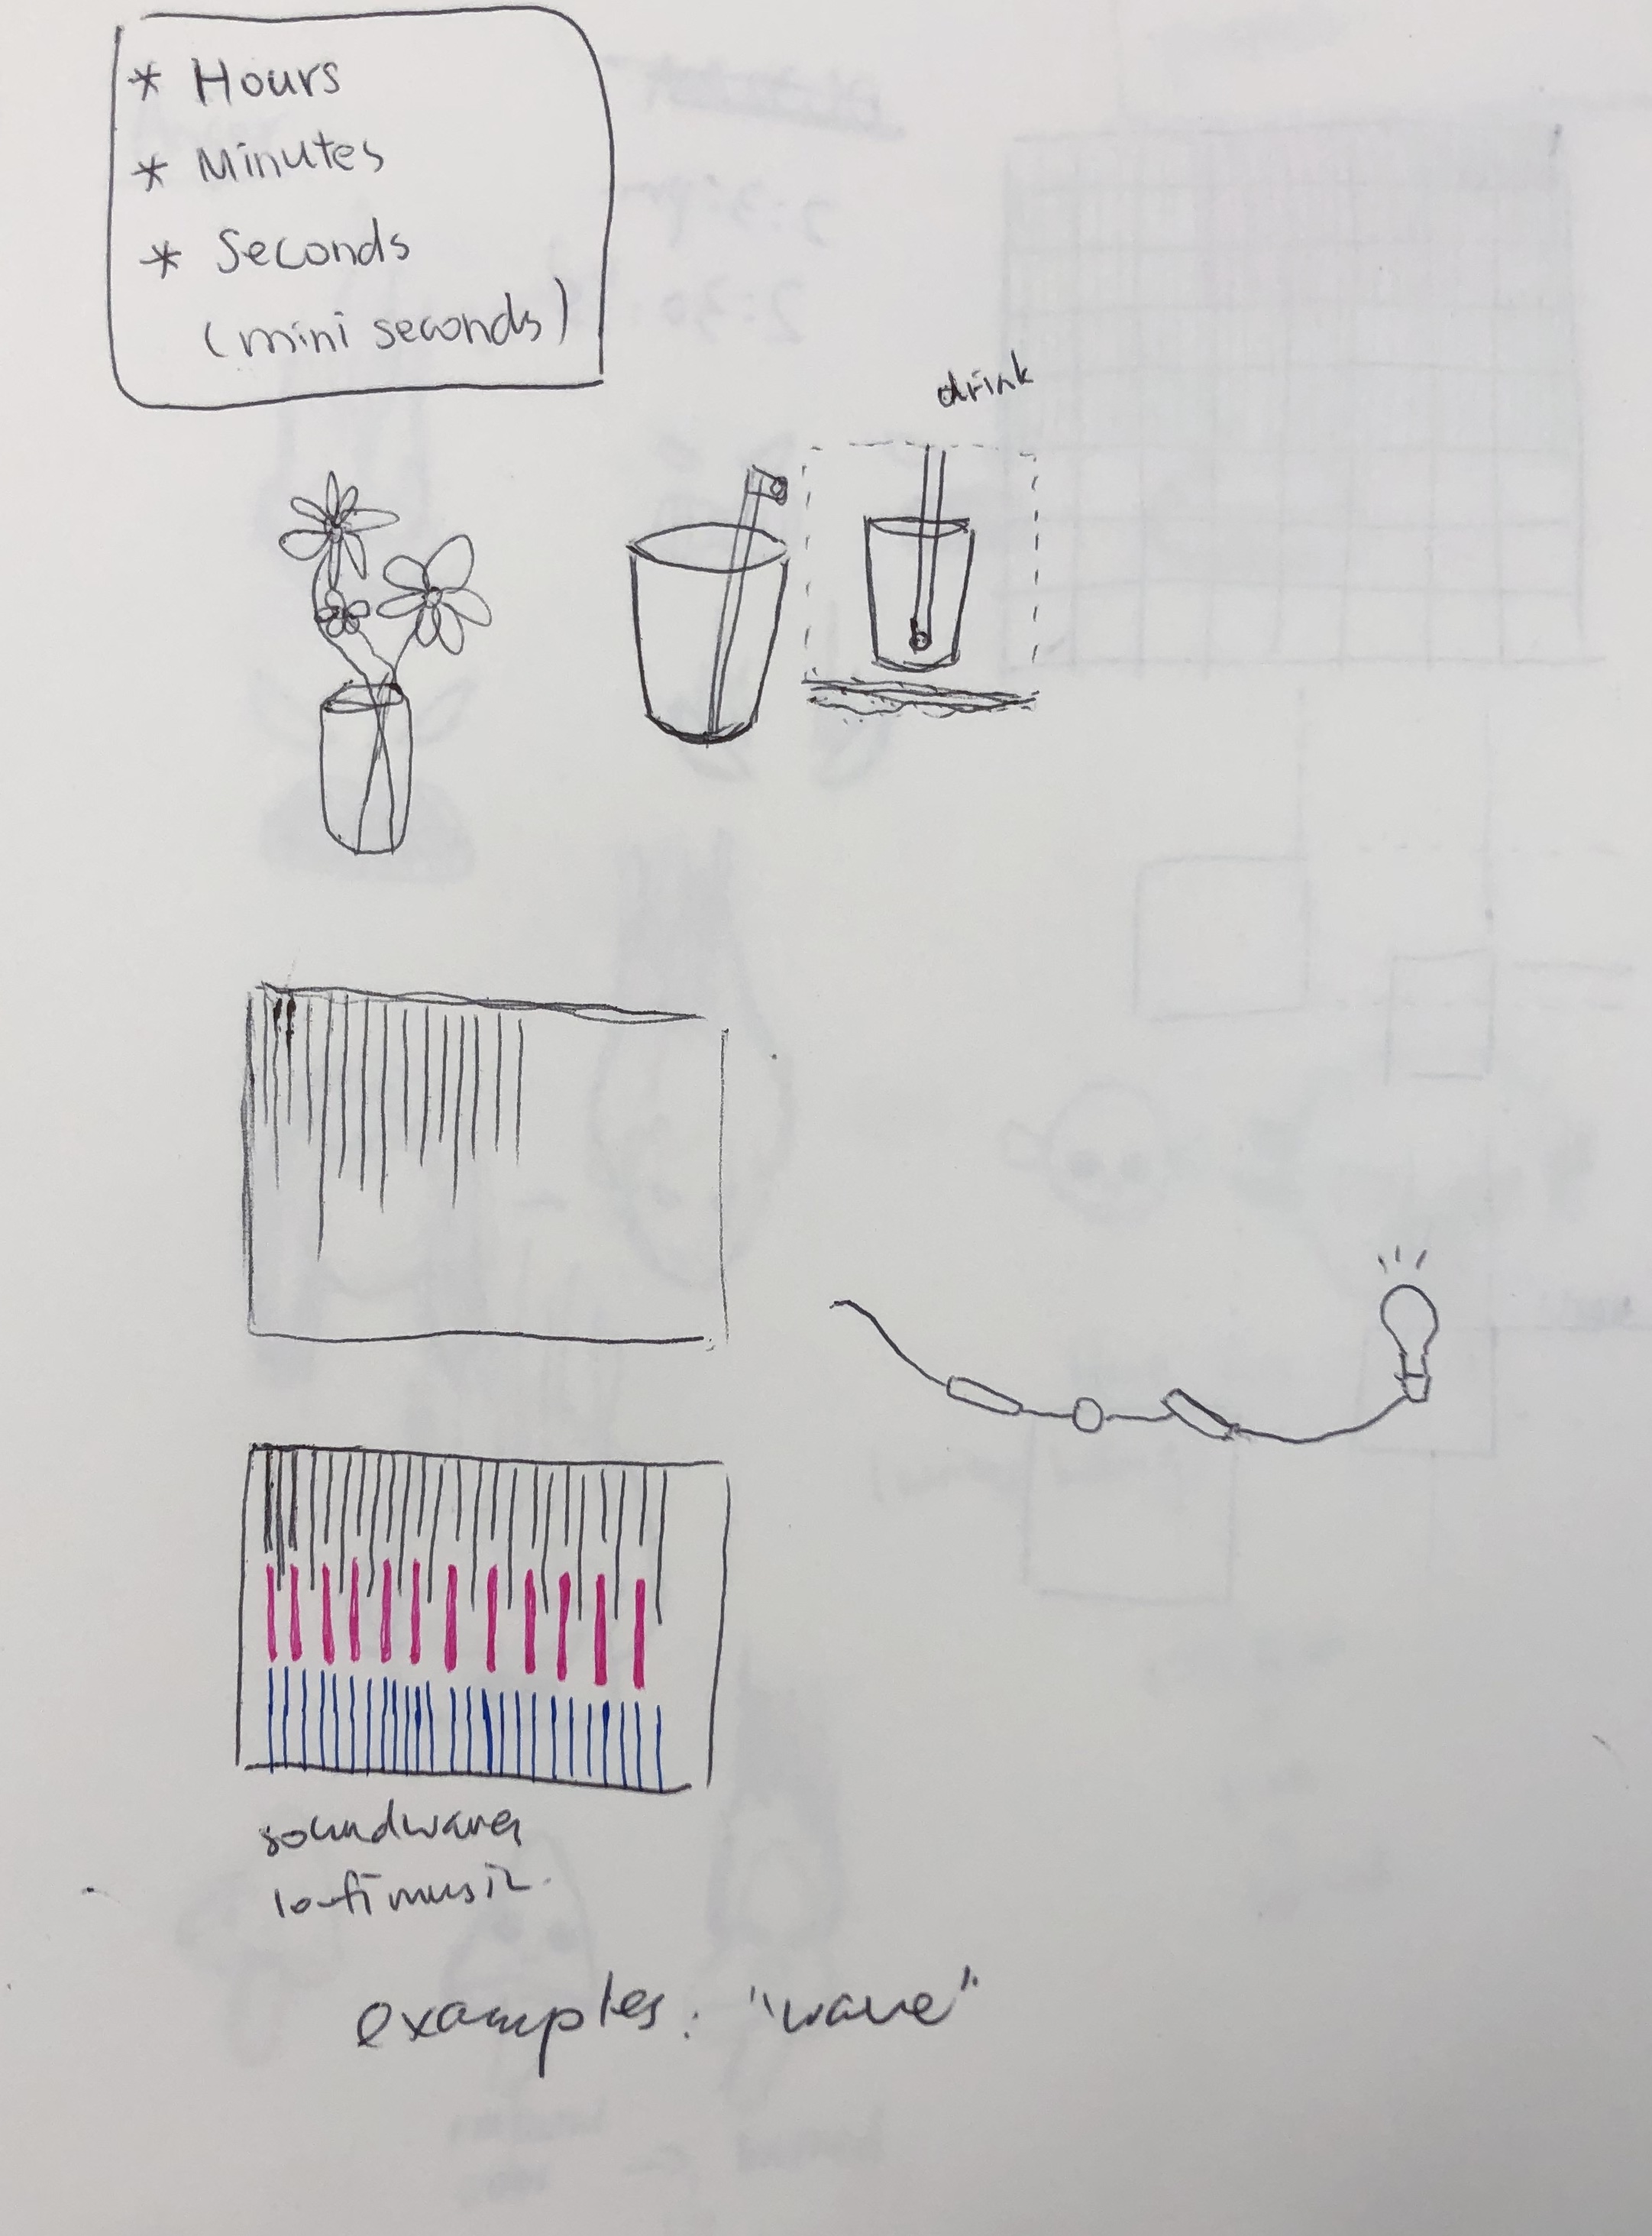 * Hours
* Minutes
* Seconds
(mini seconds)
drink
soundwaves
lofi music.
examples: "wave"